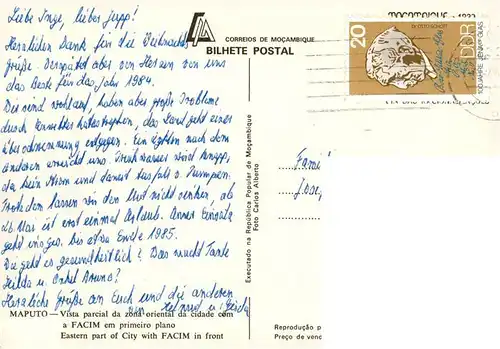 Liebe Inge, lieber Jupp!
Herzlichen Dank für die Weihnachts-
grüße. Verspätet aber von Herzen von uns
das Beste für das Jahr 1984.
Wir sind wohlauf, haben aber große Probleme
durch Umweltkatastrophen, das Land geht einer
entgegen. Ein Zyklon nach dem
anderen erreicht uns. Trinkwasser wird knapp,
da kein Strom und damit Ausfall d. Pumpen.
Trotzdem lassen wir den Mut nicht sinken, ab
ist erst einmal Urlaub. Unser Einsatz
geht bis etwa Ende 1985.
Wie geht es gesundheitlich? Was macht Tante
Hilda u. Onkel Bruno?
Herzliche Grüße an Euch und die anderen
von Helmut u. Gisela
CORREIOS DE MOÇAMBIQUE
BILHETE POSTAL
20
DDR
Executado na República Popular de Moçambique
Foto Carlos Alberto
MAPUTO – Vista parcial da zona oriental da cidade com
a FACIM em primeiro plano
Eastern part of City with FACIM in front
Reprodução p
Preço de venc